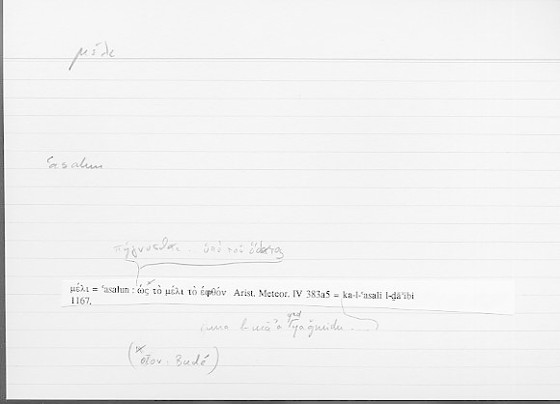 μέλι
ʿasalun
πήγνυσθαι . ὑπὸ τοῦ ὕδατος
μέλι = ʿasalun : ὡς τὸ μέλι τὸ ἑφθόν Arist. Meteor. IV 383a5 = ka-l-ʿasali l-ḏāʾibi
1167.
qad
(οἷον : Budé)